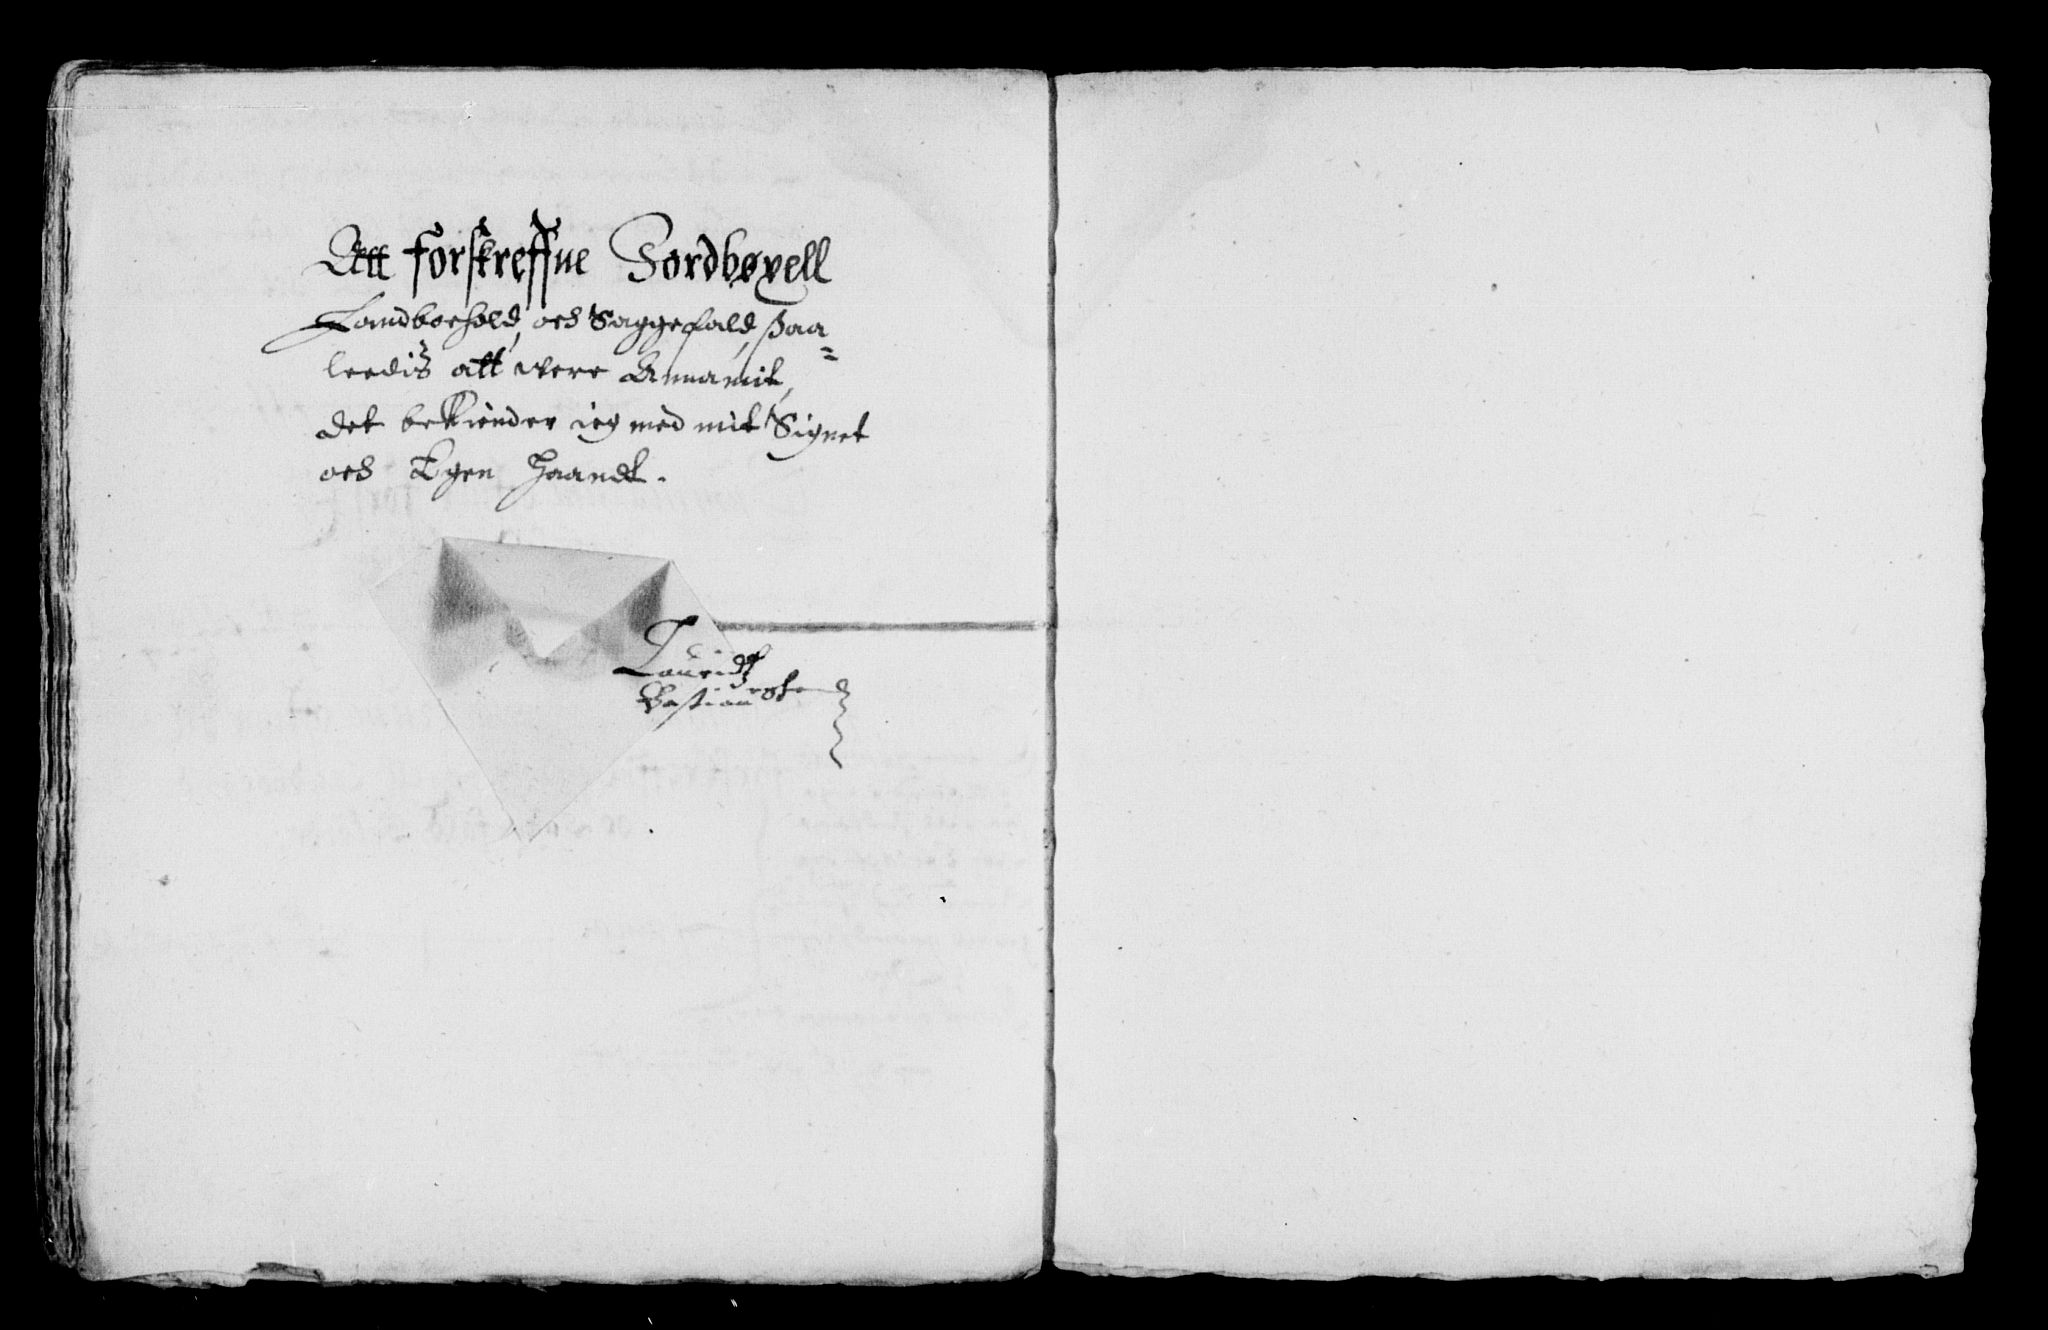 Att forskreffne Jordbøxell
Landboehold, och Saggefald, saa=
leedis att were Annamit,
det bekiender ieg med mit Signet
och Egen Haandt.
Lauridtz
Bastian